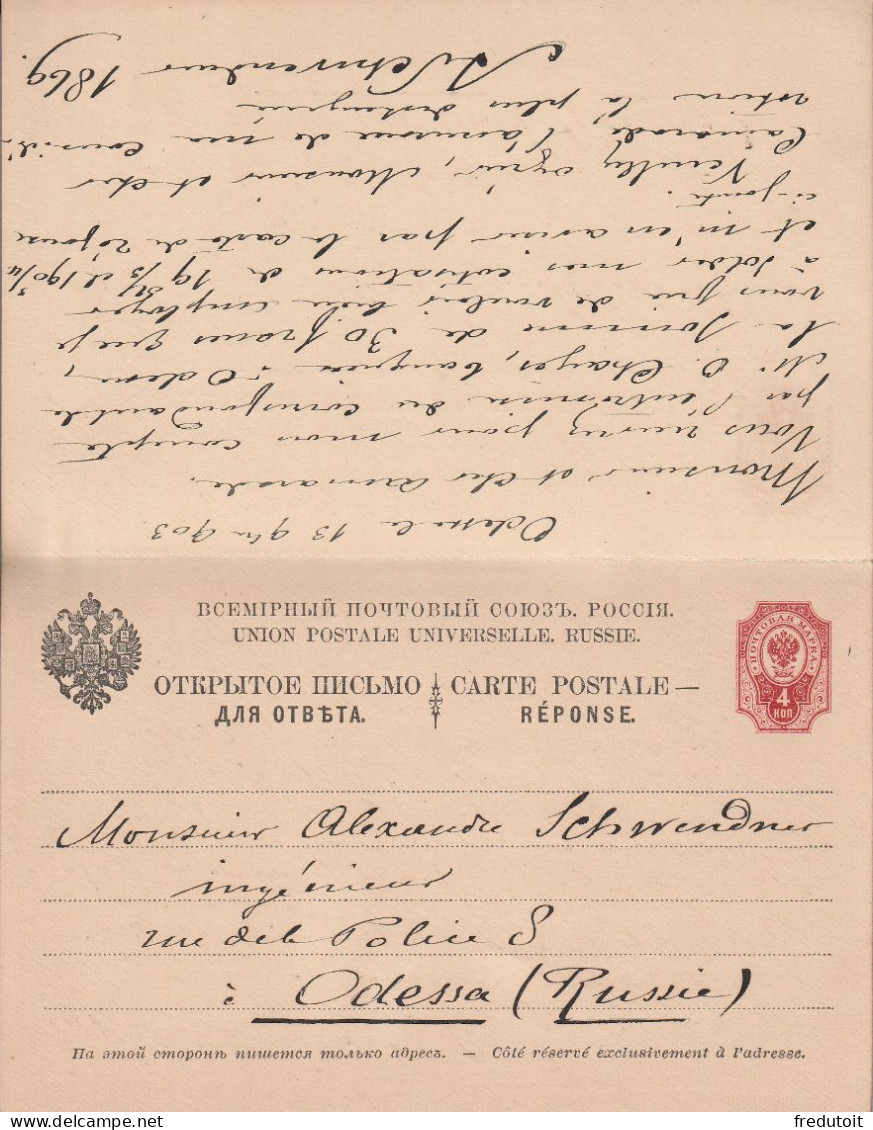 Odessa le 13 9bre 903
Monsieur et cher camarade.
Vous recevrez pour mon compte
par l'entremise du correspondant de
Mr O. Chayes, banquier à Odessa,
la somme de 30 francs que je
vous prie de vouloir bien employer
à solder mes cotisations de 19
et m'en aviser par la carte de réponse
ci-jointe.
Veuillez agréer, Monsieur et cher
Camarade l'assurance de ma considé-
ration la plus distinguée
A. Schwendner 1869.
ВСЕМІРНЫЙ ПОЧТОВЫЙ СОЮЗЪ. РОССІЯ.
UNION POSTALE UNIVERSELLE. RUSSIE.
ОТКРЫТОЕ ПИСЬМО CARTE POSTALE —
ДЛЯ ОТВѢТА. RÉPONSE.
ПОЧТОВАЯ МАРКА
4
КОП
Monsieur Alexandre Schwendner
ingénieur
rue de la Police 8
à Odessa (Russie)
На этой сторонѣ пишется только адресъ. — Côté réservé exclusivement à l'adresse.
fredutoit